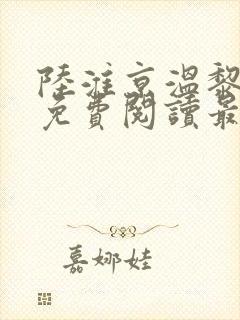 陸淮京溫黎
免費閱讀最
嘉娜娃